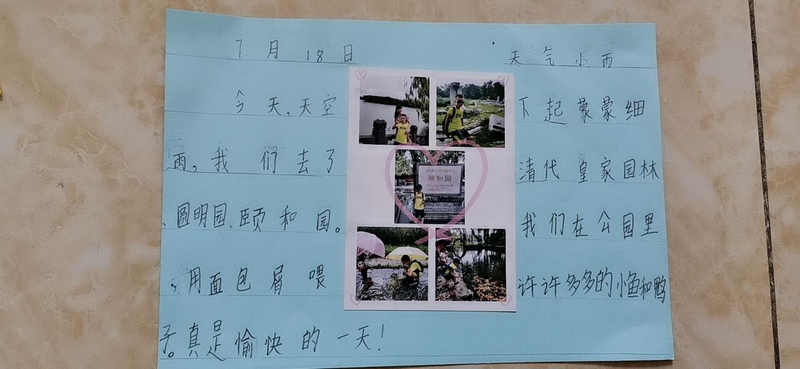 7月18日 天气小雨
今天,天空下起蒙蒙细
雨,我们去了清代皇家园林
、圆明园、颐和园。我们在公园里
,用面包屑喂许许多多的小鱼和鸭
子。真是愉快的一天!
颐和园